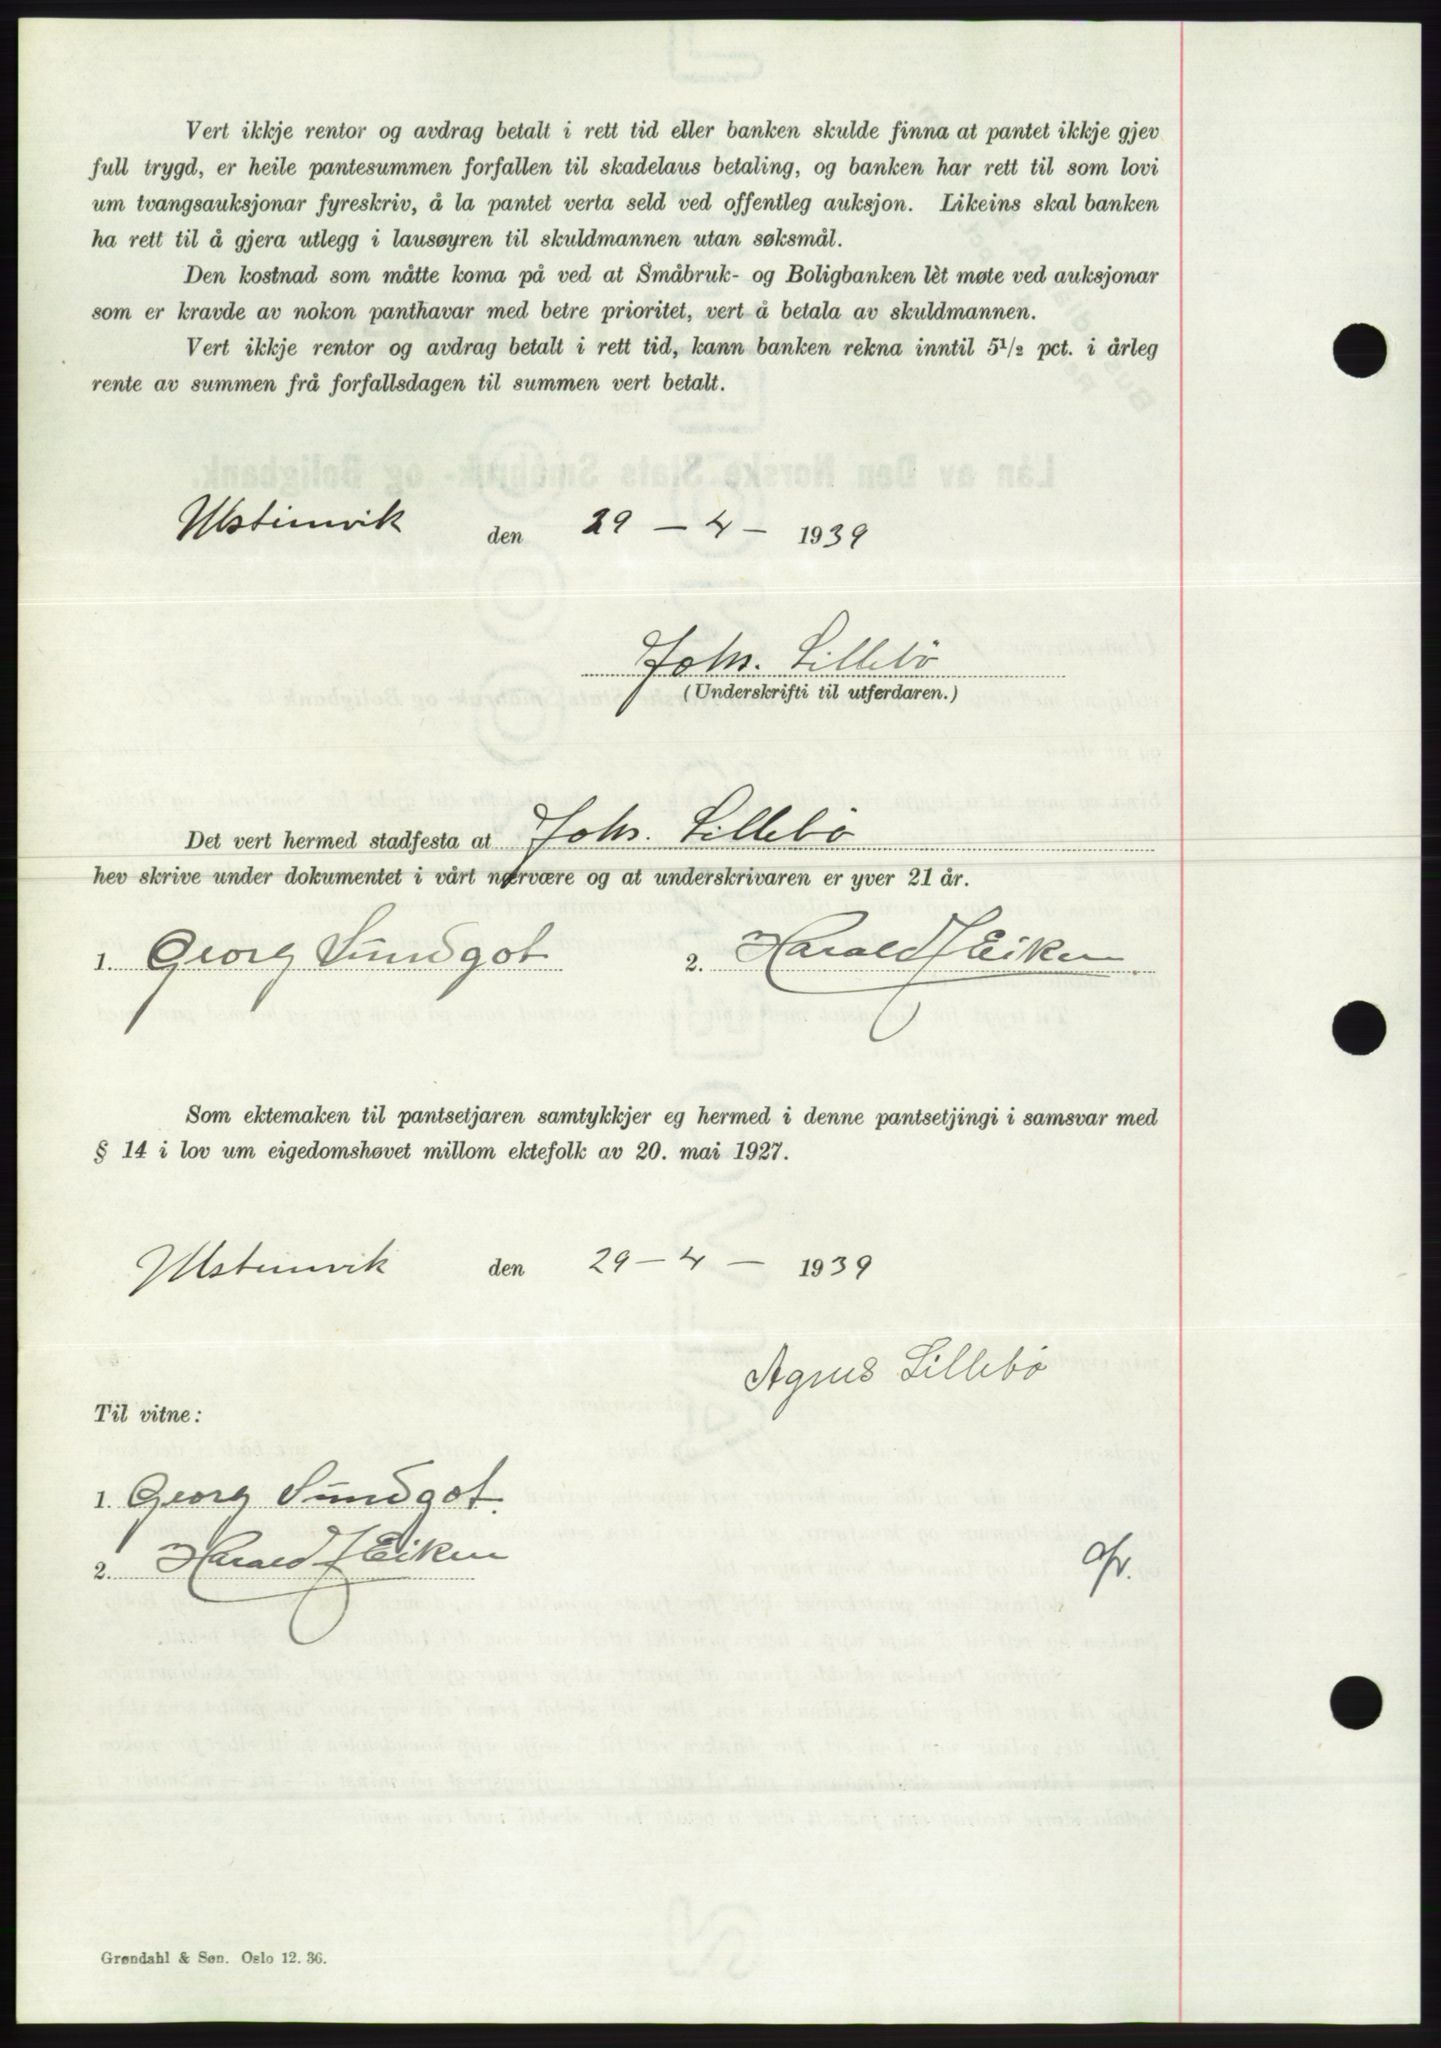 Vert ikkje rentor og avdrag betalt i rett tid eller banken skulde finna at pantet ikkje gjev
full trygd, er heile pantesummen forfallen til skadelaus betaling, og banken har rett til som lovi
um tvangsauksjonar fyreskriv, å la pantet verta seld ved offentleg auksjon. Likeins skal banken
ha rett til å gjera utlegg i lausøyren til skuldmannen utan søksmål.
Den kostnad som måtte koma på ved at Småbruk- og Boligbanken lèt møte ved auksjonar
som er kravde av nokon panthavar med betre prioritet, vert å betala av skuldmannen.
Vert ikkje rentor og avdrag betalt i rett tid, kann banken rekna inntil 5 1/2 pct. i årleg
rente av summen frå forfallsdagen til summen vert betalt.
Ulsteinvik den 29 – 4 – 1939
Johs. Lillebö
(Underskrifti til utferdaren.)
Det vert hermed stadfesta at Johs. Lillebö
hev skrive under dokumentet i vårt nærvære og at underskrivaren er yver 21 år.
1. Georg Sundgot 2. Harald J Eiken
Som ektemaken til pantsetjaren samtykkjer eg hermed i denne pantsetjingi i samsvar med
§ 14 i lov um eigedomshøvet millom ektefolk av 20. mai 1927.
Ulsteinvik den 29 – 4 – 1939
Agnes Lillebö
Til vitne:
1. Georg Sundgot.
2. Harald J Eiken
Grøndahl & Søn. Oslo 12. 36.